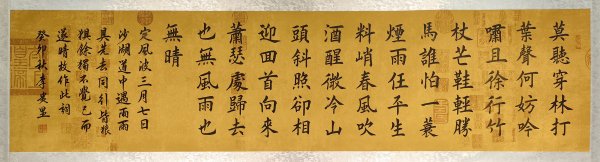 莫聽穿林打
葉聲何妨吟
嘯且徐行竹
杖芒鞋輕勝
馬誰怕一蓑
煙雨任平生
料峭春風吹
酒醒微冷山
頭斜照卻相
迎回首向來
蕭瑟處歸去
也無風雨也
無晴
定風波三月七日
沙湖道中遇雨雨
具先去同行皆狼
狽餘獨不覺已而
遂晴故作此詞
癸卯秋李